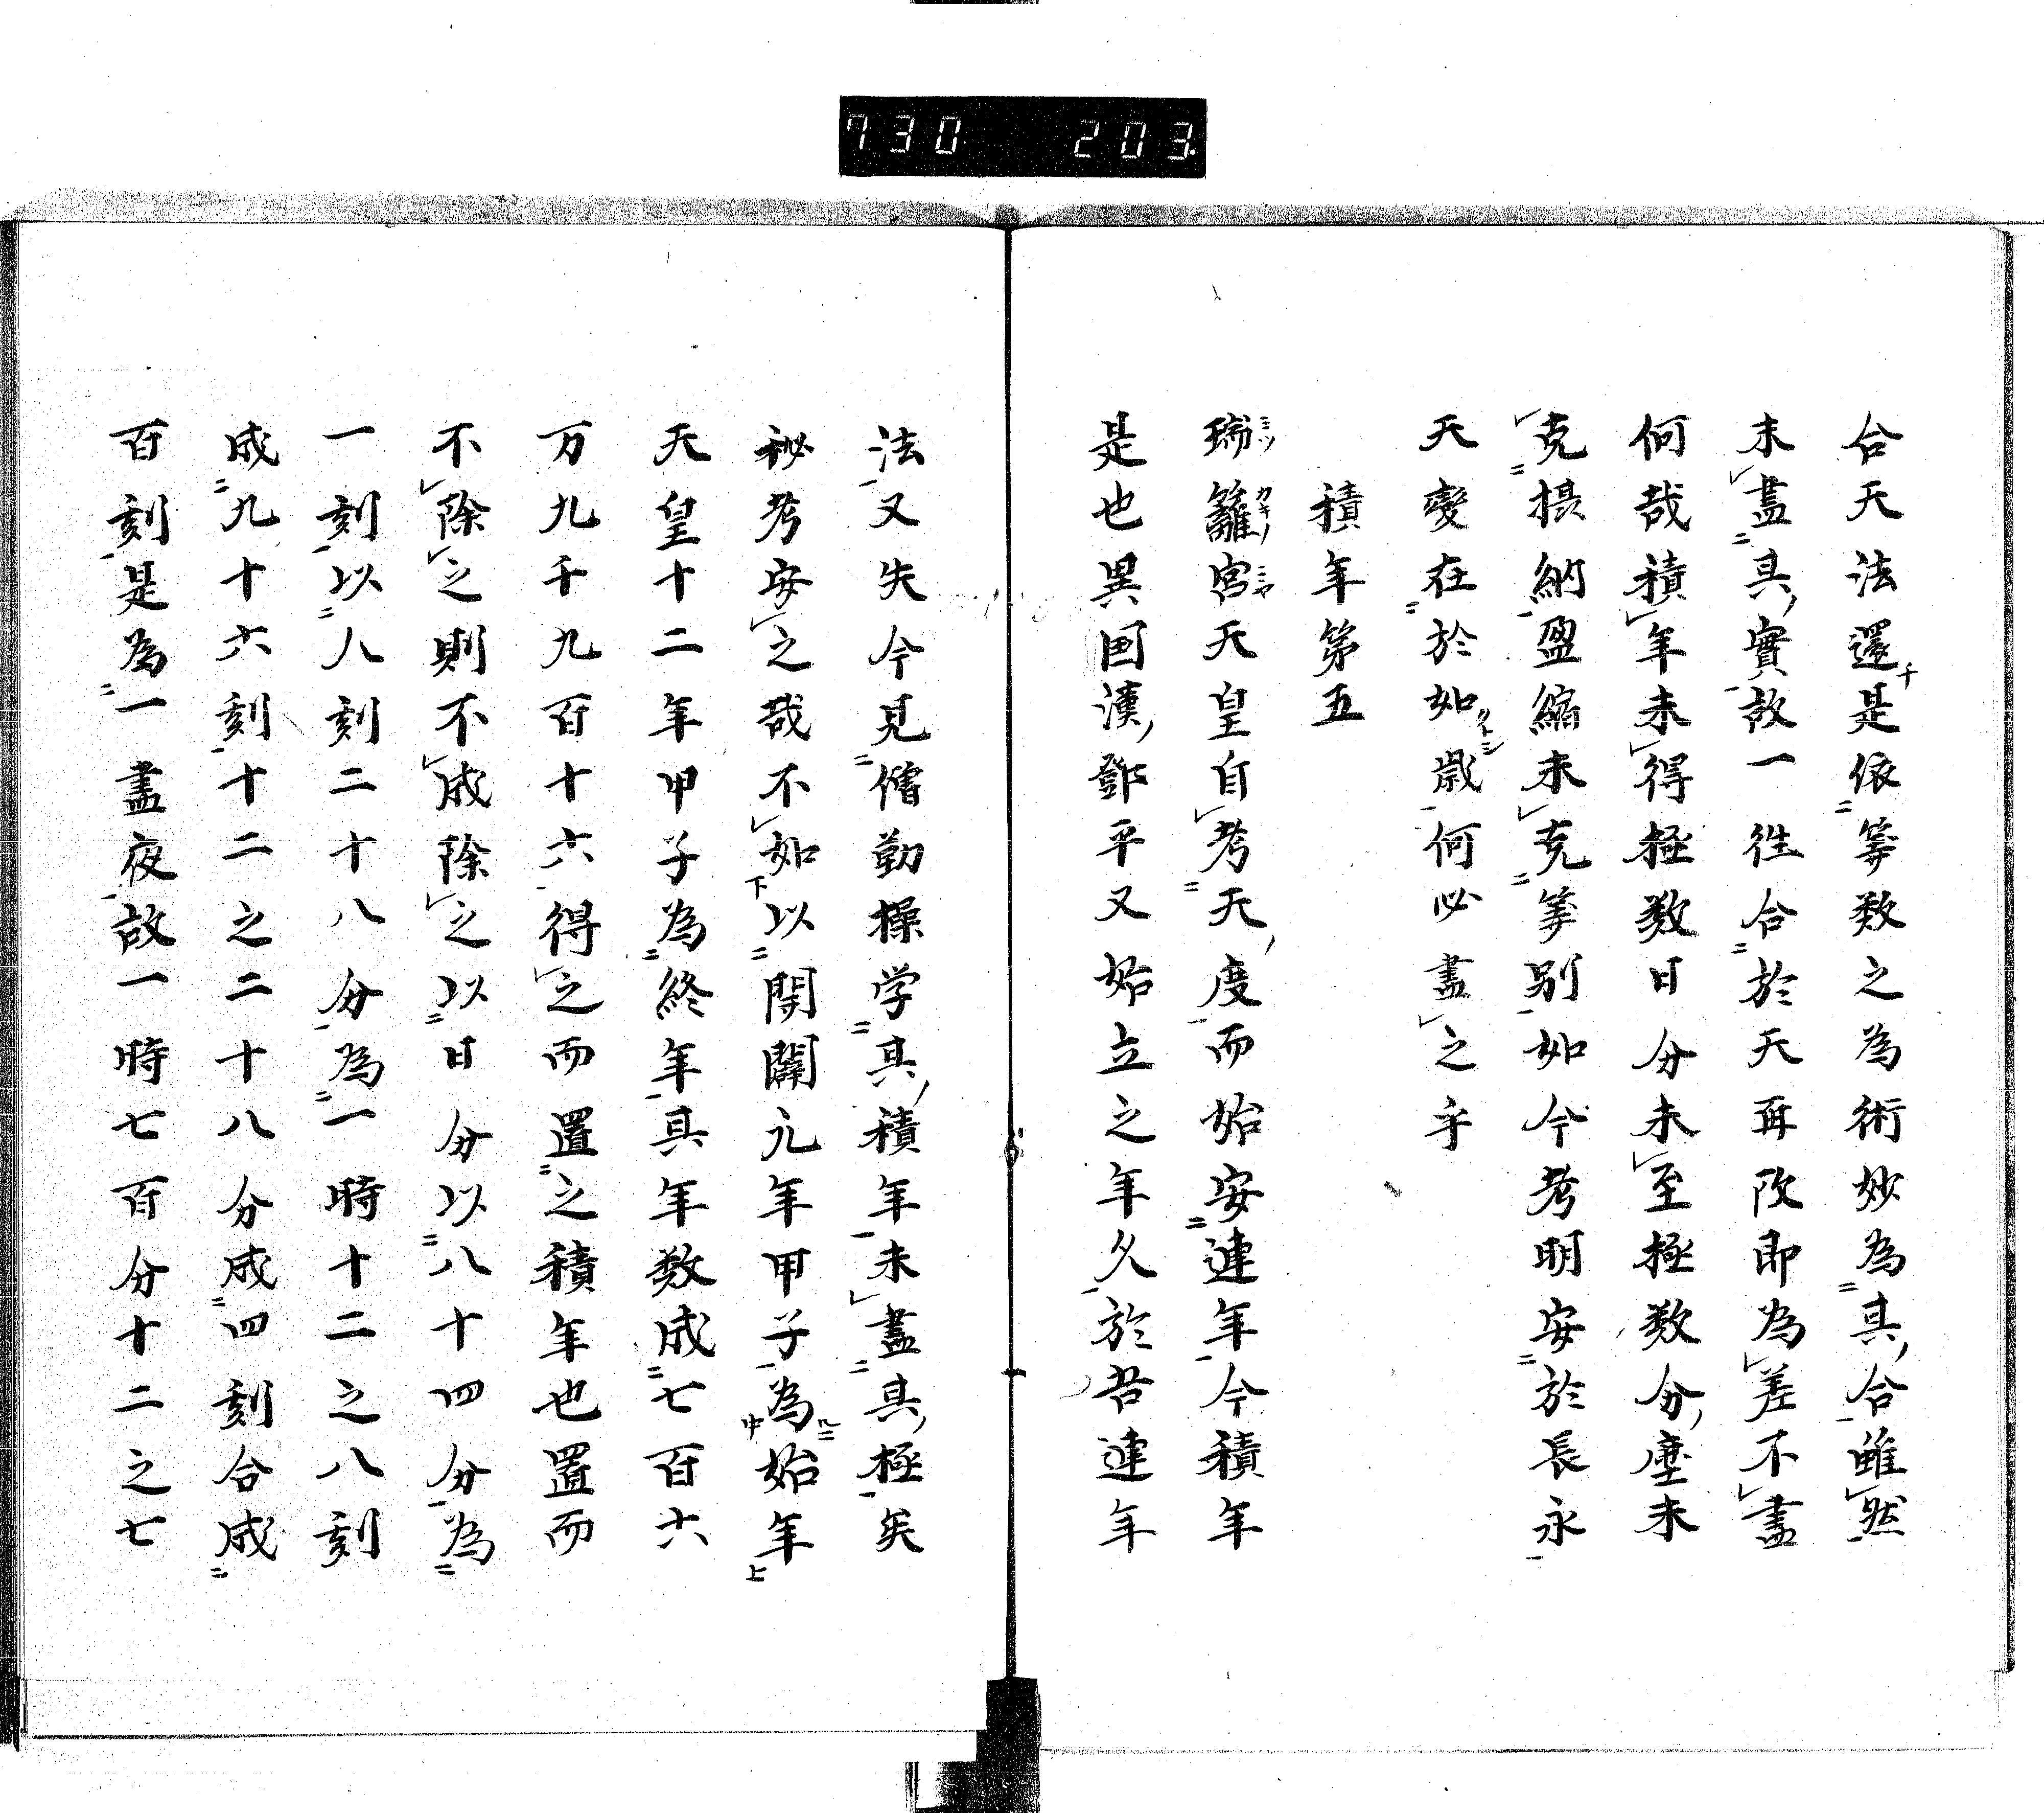 730 203.
合天法還是依筭数之為術妙為其合雖然
未盡其實故一徃合於天再改即為差不盡
何哉積年未得極数日分未至極数分塵未
克摂納盈縮未克筭別如今考明安於長永
天変在於如歳何必盡之乎
積年第五
瑞籬宮天皇自考天度而始安連年今積年
是也異国漢鄧平又始立之年久於吾連年
法又失今見僧勤操学其積年未盡其極矣
秘考安之哉不如以開闢元年甲子為始年
天皇十二年甲子為終年其年数成七百六
万九千九百十六得之而置之積年也置而
不除之則不成除之以日分以八十四分為
一刻以人刻二十八分為一時十二之八刻
成九十六刻十二之二十八分成四刻合成
百刻是為一晝夜故一時七百分十二之七